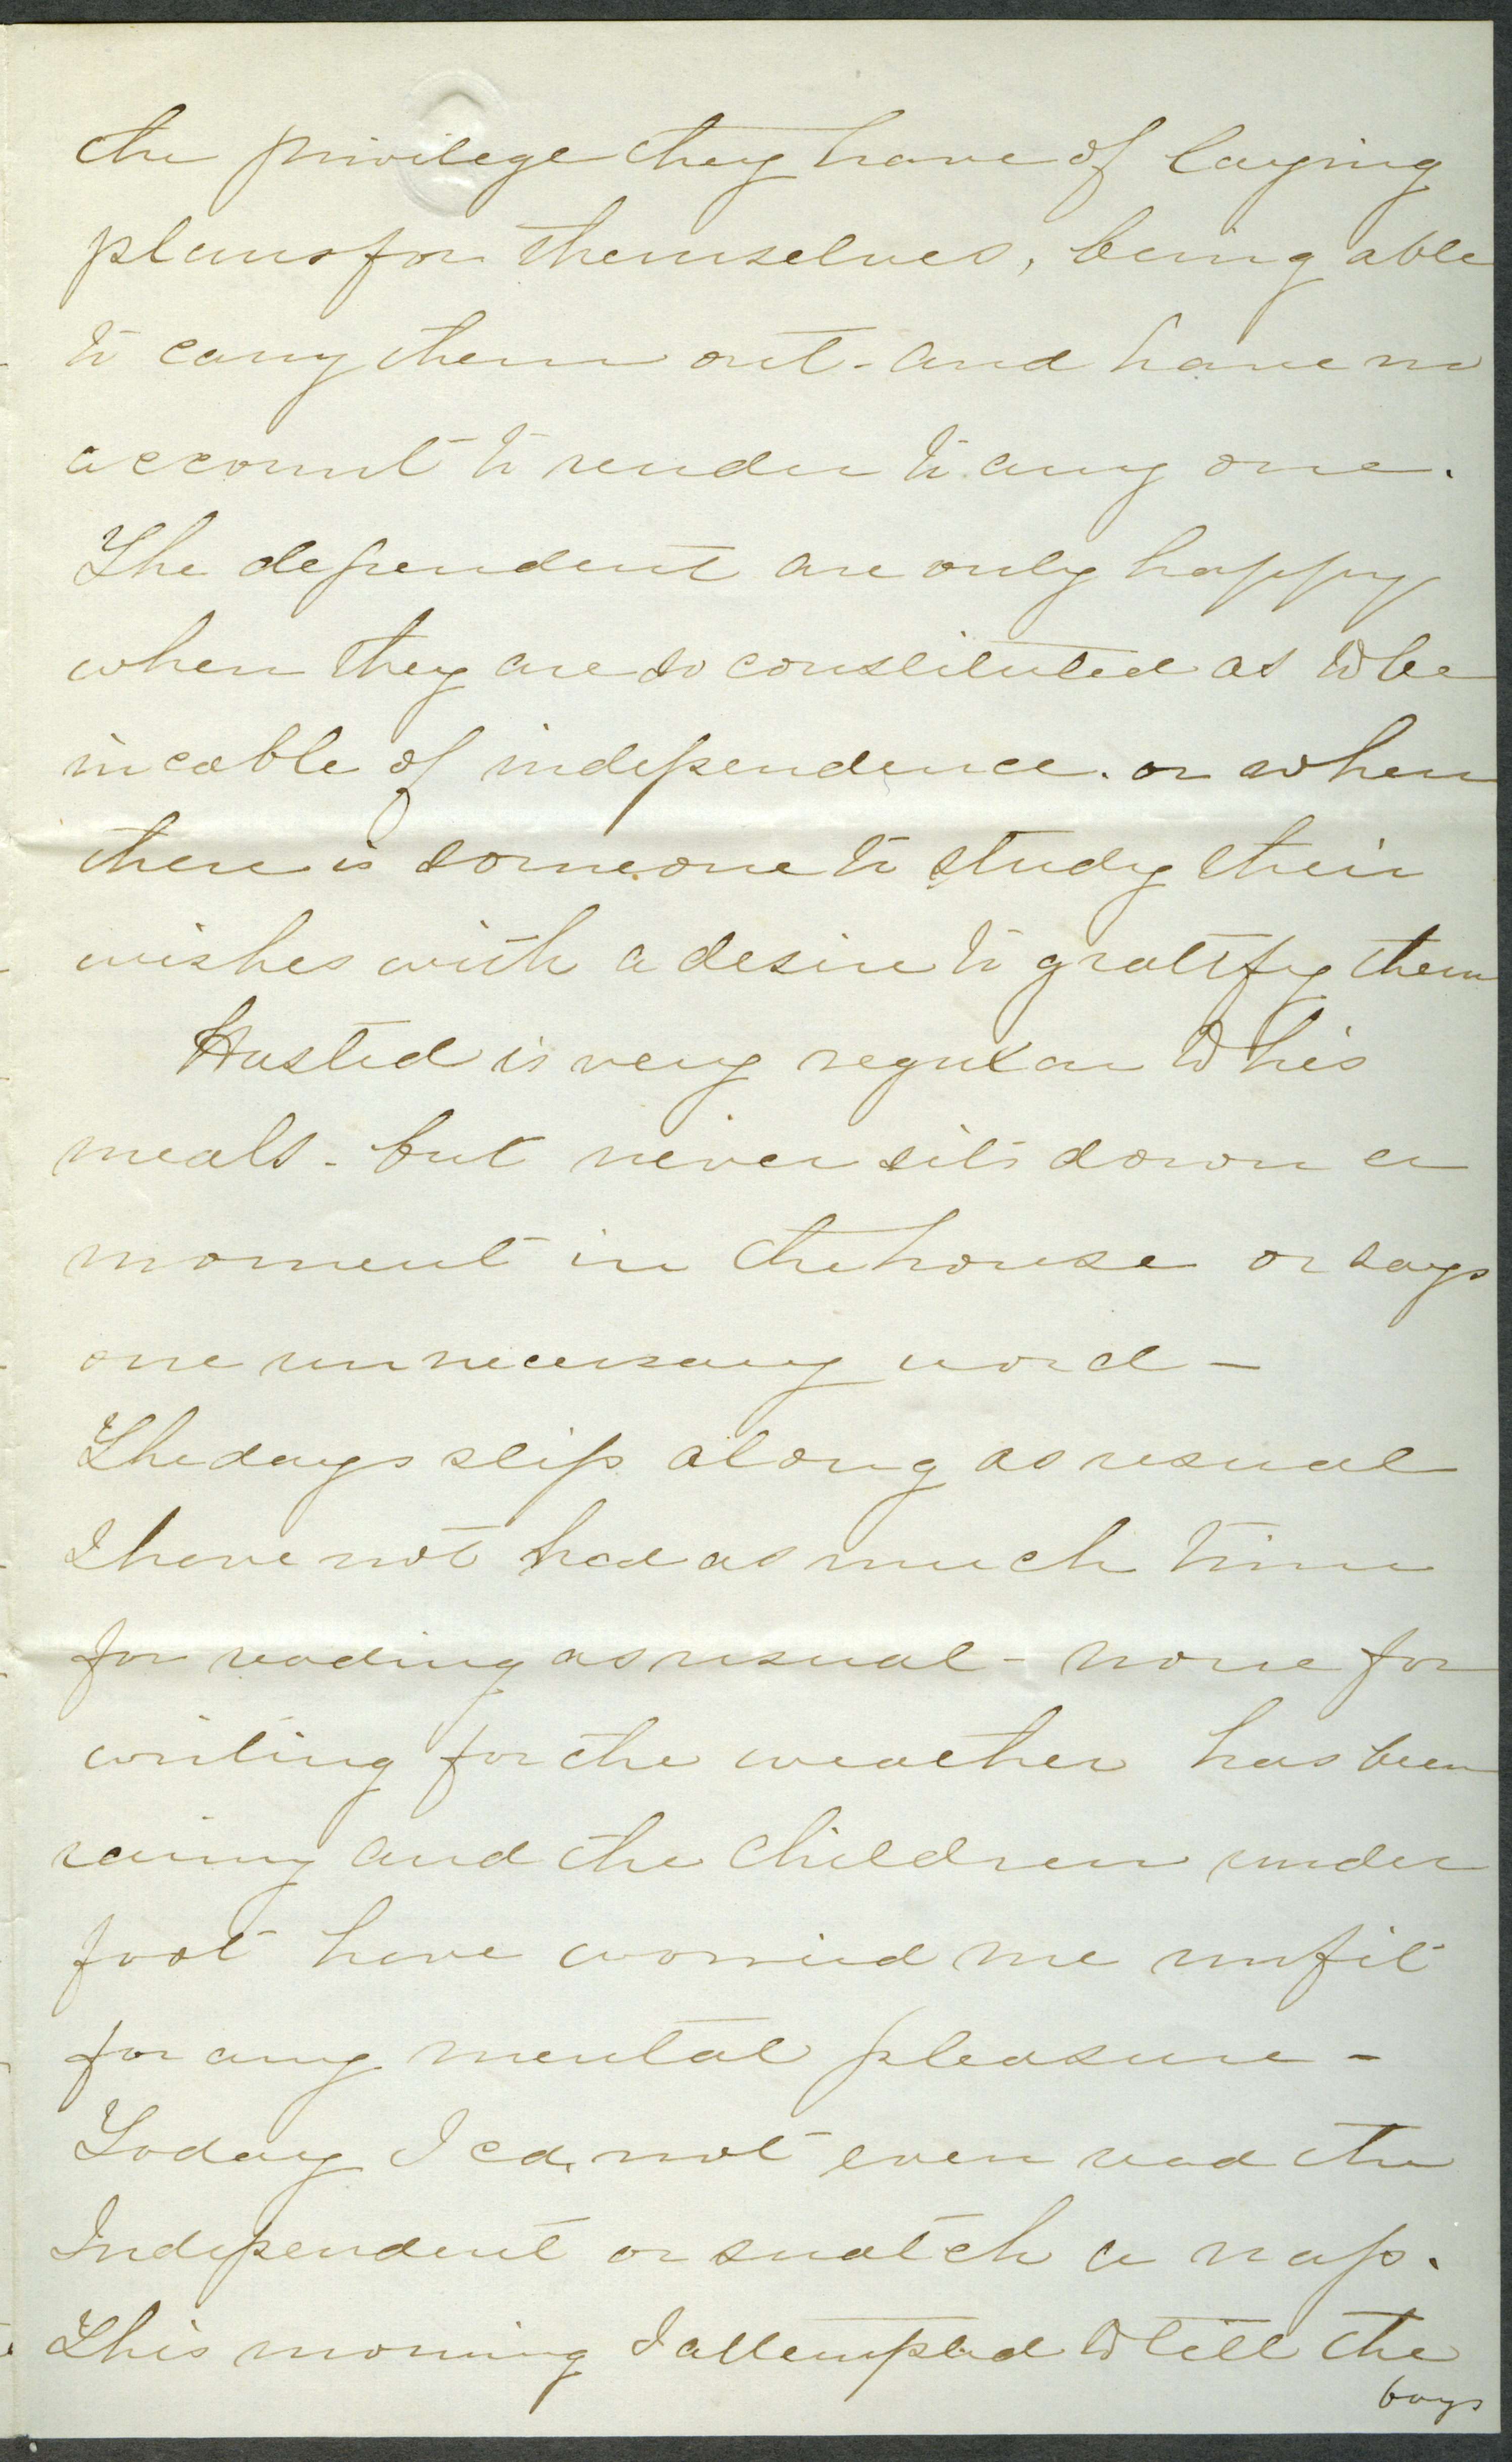 the privilege they have of laying
plans for themselves, being able
to carry them out - and have no
account to render to any one.
The dependent are only happy
when they are so constituted as to be
incable of independence. or when
there is someone to study their
wishes with a desire to gratify them
Husted is very regular to his
meals - but never sits down a
moment in the house or says
one unnecessary word -
The days slip along as usual
I have not had as much time
for reading as usual - none for
writing for the weather has been
rainy and the children under
foot have worried me unfit
for any mental pleasure -
Today I cd. not even read the
Independent or snatch a nap.
This morning I attempted to tell the
boys